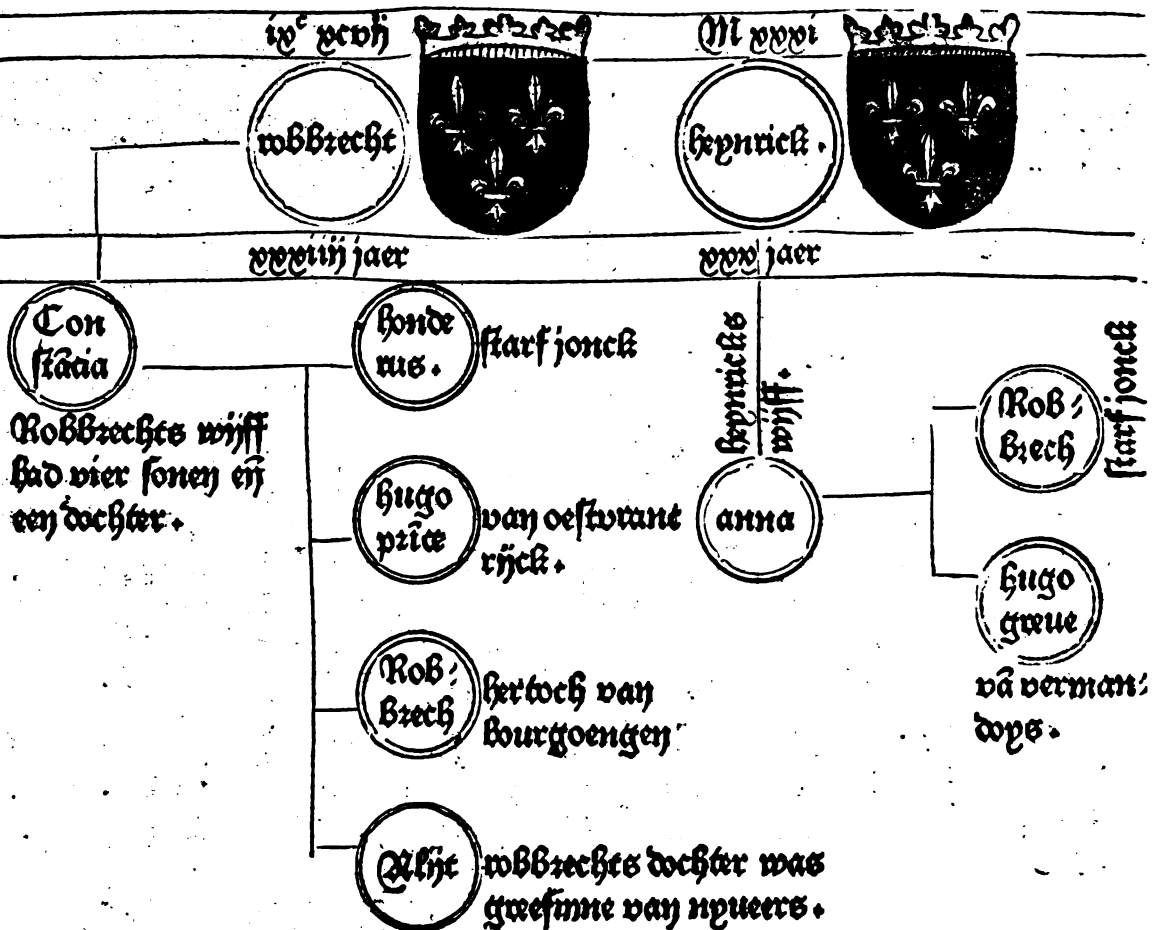 ixᶜ xcvij
M xxxi
robbrecht
heynrick.
xxxiiij jaer
xxx jaer
Con
stācia
Robbrechts wijff
had vier sonen eñ
een dochter.
honde
rus.
starf jonck
hugo
prīce
van oestvranc
rijck.
Rob⸗
brech
hertoch van
bourgoengen
Alijt
robbrechts dochter was
greefinne van nyueers.
heynricks
wijff.
anna
Rob⸗
brech
starf jonck
hugo
greue
vā verman⸗
doys.